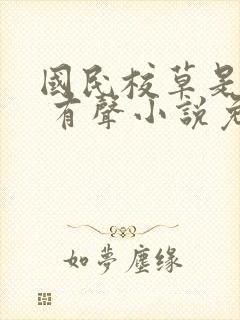 國民校草是
有聲小說免
如夢塵緣